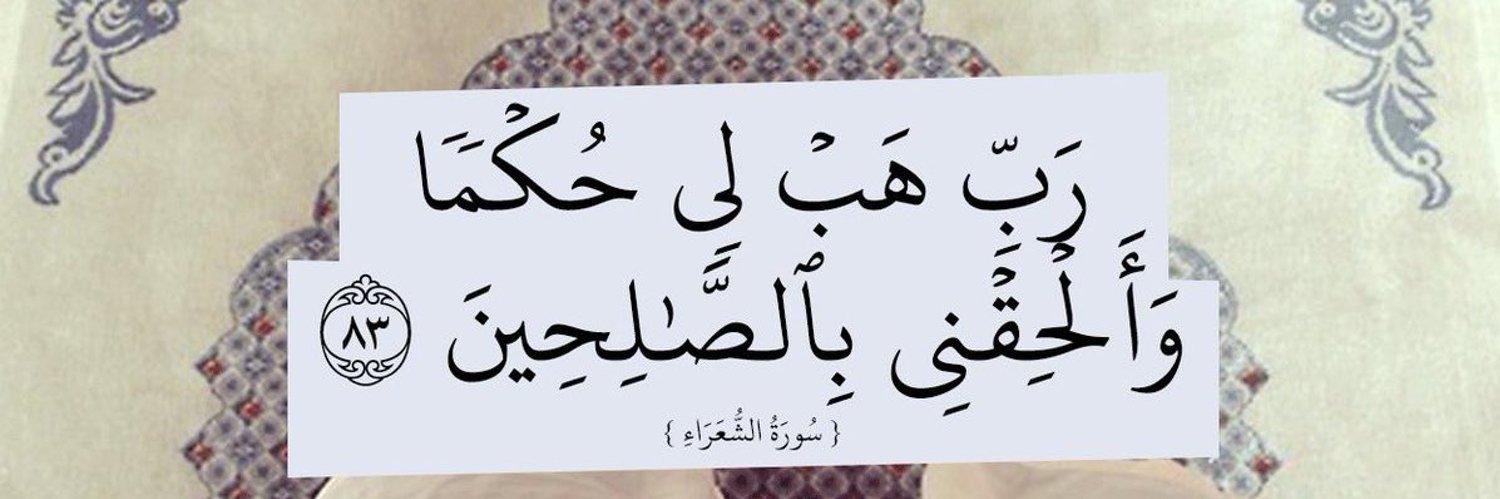 رَبِّ هَبۡ لِي حُكۡمٗا
وَأَلۡحِقۡنِي بِٱلصَّٰلِحِينَ ٨٣
{ سُورَةُ الشُّعَرَاءِ }